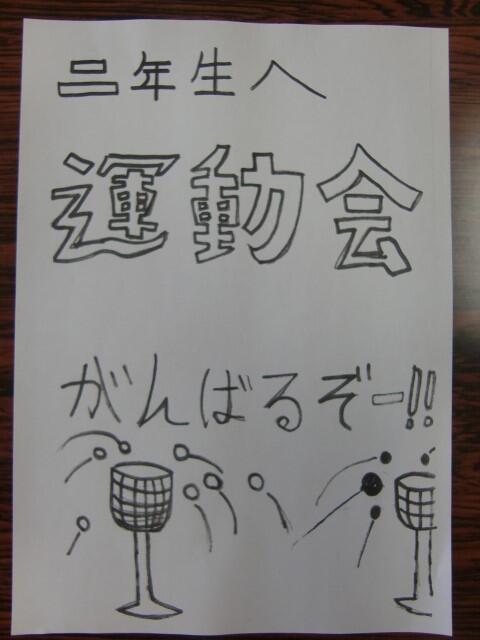 二年生へ
運動会
がんばるぞー!!